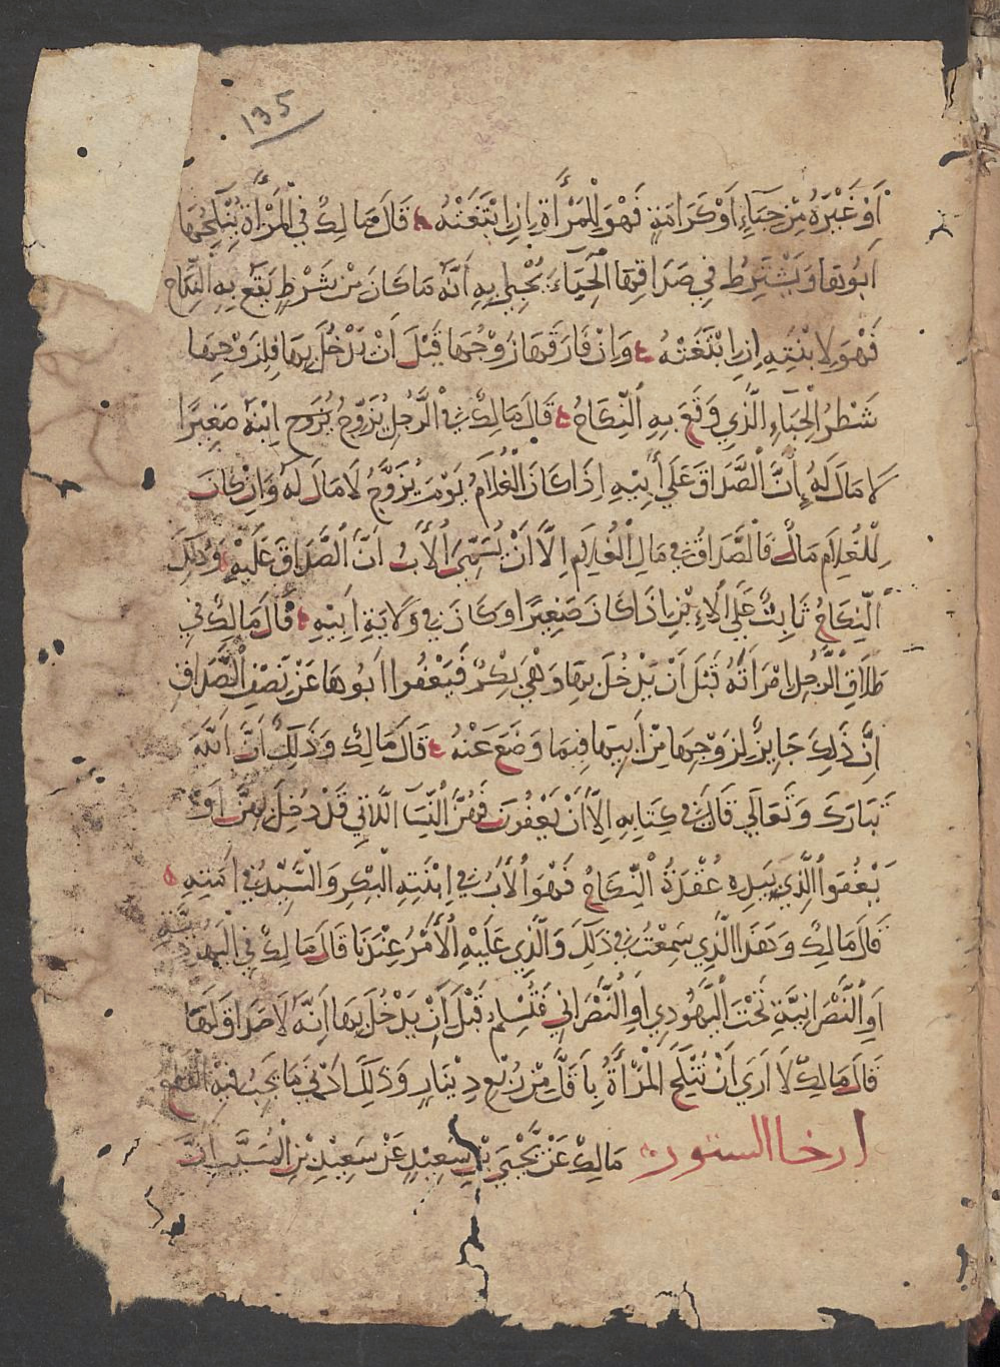 135
أَوْ غَيْرَهُ مِنْ حِبَاءٍ أَوْ كَرَامَةٍ فَهْوَ لِلْمَرْأَةِ إِنِ ابْتَغَتْهُ قَالَ مَالِكٌ فِي الْمَرْأَةِ يُنْكِحُهَا
أَبُوهَا وَيَشْتَرِطُ فِي صَدَاقِهَا الْحِبَاءَ يُحْبَى بِهِ أَنَّهُ مَا كَانَ مِنْ شَرْطٍ يَقَعُ بِهِ النِّكَاح
فَهْوَ لِابْنَتِهِ إِنِ ابْتَغَتْهُ وَإِنْ فَارَقَهَا زَوْجُهَا قَبْلَ أَنْ يَدْخُلَ بِهَا فَلِزَوْجِهَا
شَطْرُ الْحِبَاءِ الَّذِي وَقَعَ بِهِ النِّكَاحُ قَالَ مَالِكٌ فِي الرَّجُلِ يُزَوِّجُ يُزَوِّج ابْنَهُ صَغِيرًا
لا مَالَ لَهُ إِنَّ الصَّدَاقَ عَلَى أَبِيهِ إِذَا كَانَ الْغُلَامُ يَوْمَ يُزَوَّجُ لَا مَالَ لَهُ وَإِنْ كَانَ
لِلْغُلَامِ مَالٌ فَالصَّدَاقُ فِي مَالِ الْغُلَامِ إِلَّا أَنْ يُسَمِّيَ الْأَبُ أَنَّ الصَّدَاقَ عَلَيْهِ وَذَلِكَ
النِّكَاحُ ثَابِتٌ عَلَى الِابْنِ إِذَا كَانَ صَغِيرًا وَكَانَ فِي وَلَايَةِ أَبِيهِ قَالَ مَالِكٌ فِي
طَلَاقِ الرَّجُلِ امْرَأَتَهُ قَبْلَ أَنْ يَدْخُلَ بِهَا وَهْيَ بِكْرٌ فَيَعْفُوا أَبُوهَا عَنْ نِصْفِ الصَّدَاقِ
إِنَّ ذَلِكَ جَايِزٌ لِزَوْجِهَا مِنْ أَبِيهَا فِيمَا وَضَعَ عَنْهُ قَالَ مَالِكٌ وَذَلِكَ أَنَّ اللَّهَ
تَبَارَكَ وَتَعَالَى قَالَ فِي كِتَابِهِ إِلَّا أَنْ يَعْفُونَ فَهُنَّ النِّسَا اللَّاتِي قَدْ دُخِلَ بِهِنَّ أَوْ
يَعْفُوَا الَّذِي بِيَدِهِ عُقْدَةُ النِّكَاحِ فَهْوَ الْأَبُ فِي ابْنَتِهِ الْبِكْرِ وَالسَّيِّدُ فِي أَمَتِهِ
قَالَ مَالِكٌ وَهَذَا الَّذِي سَمِعْتُ فِي ذَلِكَ وَالَّذِي عَلَيْهِ الْأَمْرُ عِنْدَنَا قَالَ مَالِكٌ فِي الْيَهُودِيَّةِ
أَوِ النَّصْرَانِيَّةِ تَحْتَ الْيَهُودِيِّ أَوِ النَّصْرَانِيِّ فَتُسْلِمُ قَبْلَ أَنْ يَدْخُلَ بِهَا إِنَّهُ لَا صَدَاقَ لَهَا
قَالَ مَالِكٌ لَا أَرَى أَنْ تُنْكَحَ الْمَرْأَةُ بِأَقَلَّ مِنْ رُبْعِ دِينَارٍ وَذَلِكَ أَدْنَى مَا يَجِبُ فِيهِ الْقَطْعُ
ارخا الستور مَالِكٌ عَنْ يَحْيَى بْنِ سَعِيدٍ عَنْ سَعِيدِ بْنِ الْمُسَيَّبِ أَنَّ